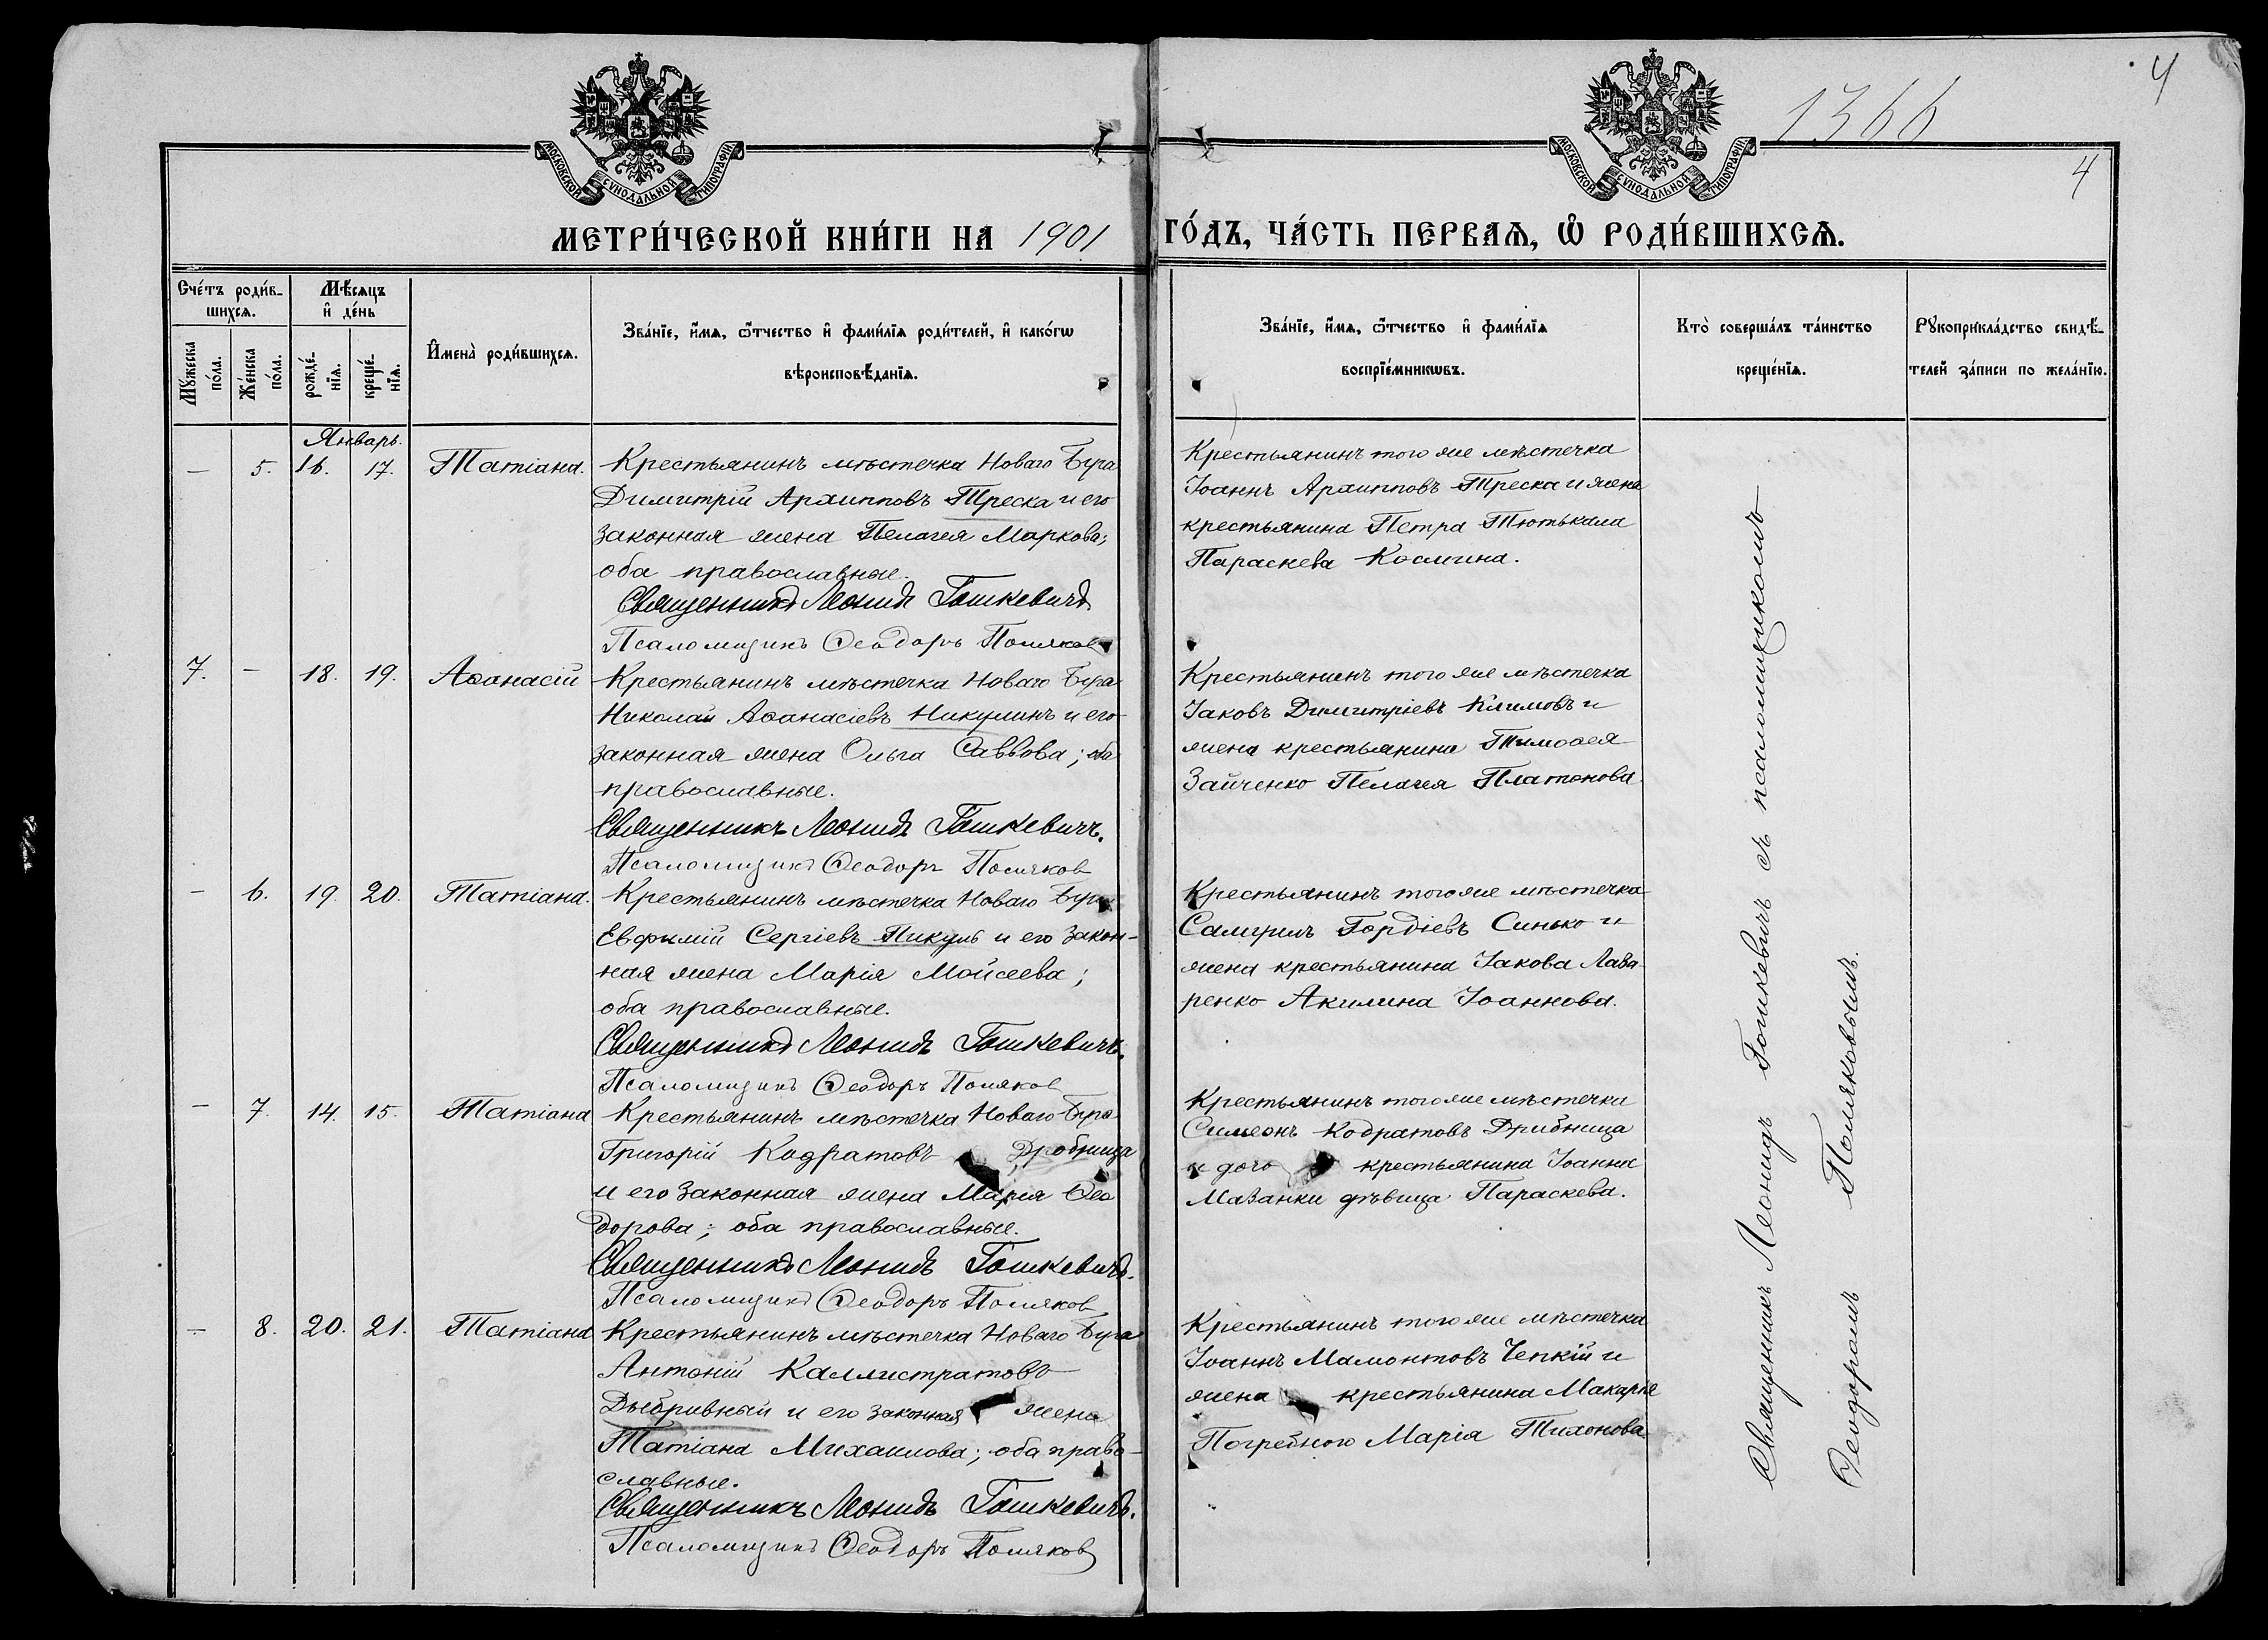 1366
4
4
МОСКОВСКОЙ СѴНОДАЛЬНОЙ ТИПОГРАФІИ
МОСКОВСКОЙ СѴНОДАЛЬНОЙ ТИПОГРАФІИ
МЕТРИ́ЧЕСКОЙ КНИ́ГИ НА 1901 ГО́ДЪ, ЧА́СТЬ ПЕРВАѦ, Ѡ҆ РОДИ́ВШИХСѦ.
Сче́тъ роди́в-
шихсѧ.
Мѣ́сѧцъ
и҆ де́нь
Мꙋ́жеска
по́ла.
Же́нска
по́ла.
рожде́-
нїѧ.
креще́-
нїѧ.
И҆мена̀ роди́вшихсѧ.
Зва́нїе, и҆́мѧ, ѻ҆́тчество и҆ фами́лїѧ роди́телей, и҆ како́гѡ
вѣроисповѣ́данїѧ.
Зва́нїе, и҆́мѧ, ѻ҆́тчество и҆ фами́лїѧ
воспрїе́мникѡвъ.
Кто̀ соверша́лъ та́инство
креще́нїѧ.
Рꙋкоприкла́дство свидѣ́-
телей за́писи по жела́нїю.
Январь.
— 5. 16. 17. Татіана. Крестьянинъ мѣстечка Новаго Буга
Димитрій Архипповъ Треска и его
законная жена Пелагея Маркова;
оба православные.
Священникъ Леонидъ Гошкевичъ
Псаломщикъ Ѳеодоръ Поляковъ
Крестьянинъ того же мѣстечка
Іоаннъ Архипповъ Треска и жена
крестьянина Петра Тютькала
Параскева Космина.
7. — 18. 19. Аѳанасій Крестьянинъ мѣстечка Новаго Буга
Николай Аѳанасіевъ Никулинъ и его
законная жена Ольга Саввова; оба
православные.
Священникъ Леонидъ Гошкевичъ.
Псаломщикъ Ѳеодоръ Поляков
Крестьянинъ того же мѣстечка
Іаковъ Димитріевъ Климовъ и
жена крестьянина Тимоѳея
Зайченко Пелагея Платонова.
— 6. 19. 20. Татіана. Крестьянинъ мѣстечка Новаго Буга
Евфимій Сергіевъ Пикуль и его закон-
ная жена Марія Моисеева;
оба православные.
Священникъ Леонидъ Гошкевичъ.
Псаломщикъ Ѳеодоръ Поляков
Крестьянинъ того же мѣстечка
Самуилъ Гордіевъ Синько и
жена крестьянина Іакова Лаза-
ренко Акилина Іоаннова.
— 7. 14. 15. Татіана Крестьянинъ мѣстечка Новаго Буга
Григорій Кодратовъ Дробница
и его законная жена Марія Ѳео
дорова; оба православные.
Священникъ Леонидъ Гошкевичъ.
Псаломщикъ Ѳеодоръ Поляков
Крестьянинъ того же мѣстечка
Симеонъ Кодратовъ Дрибница
и дочь крестьянина Іоанна
Мазанки дѣвица Параскева.
— 8. 20. 21. Татіана Крестьянинъ мѣстечка Новаго Буга
Антоній Каллистратовъ
Дыбривный и его законная жена
Татіана Михаилова; оба право-
славные.
Священникъ Леонидъ Гошкевичъ.
Псаломщикъ Ѳеодоръ Поляков
Крестьянинъ того же мѣстечка
Іоаннъ Мамонтовъ Чепкій и
жена крестьянина Макарія
Погребного Марія Тихонова
Священникъ Леонидъ Гошкевичъ съ псаломщикомъ
Ѳеодоромъ Поляковымъ.